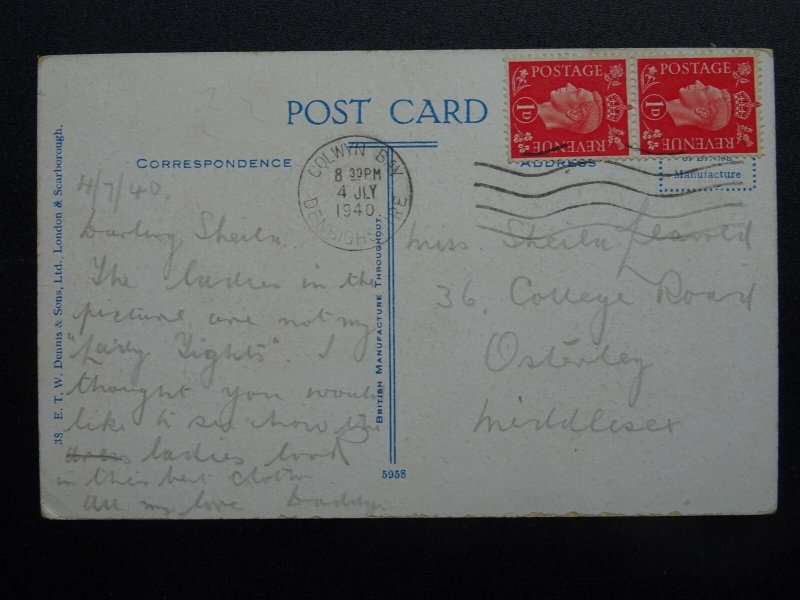 POST CARD
CORRESPONDENCE
ADDRESS
POSTAGE
1D
REVENUE
POSTAGE
1D
REVENUE
OF BRITISH
Manufacture
COLWYN BAY
8 30PM
4 JLY
1940
DENBIGHSHIRE
4/7/40.
Darling Sheila
The ladies in the
picture are not my
"Lady Tights". I
thought you would
like to see how the
dress ladies look
in this best cloth
All my love Daddy.
Miss. Sheila
36, College Road
Osterley
Middlesex
BRITISH MANUFACTURE THROUGHOUT.
5958
38 E. T. W. Dennis & Sons, Ltd., London & Scarborough.